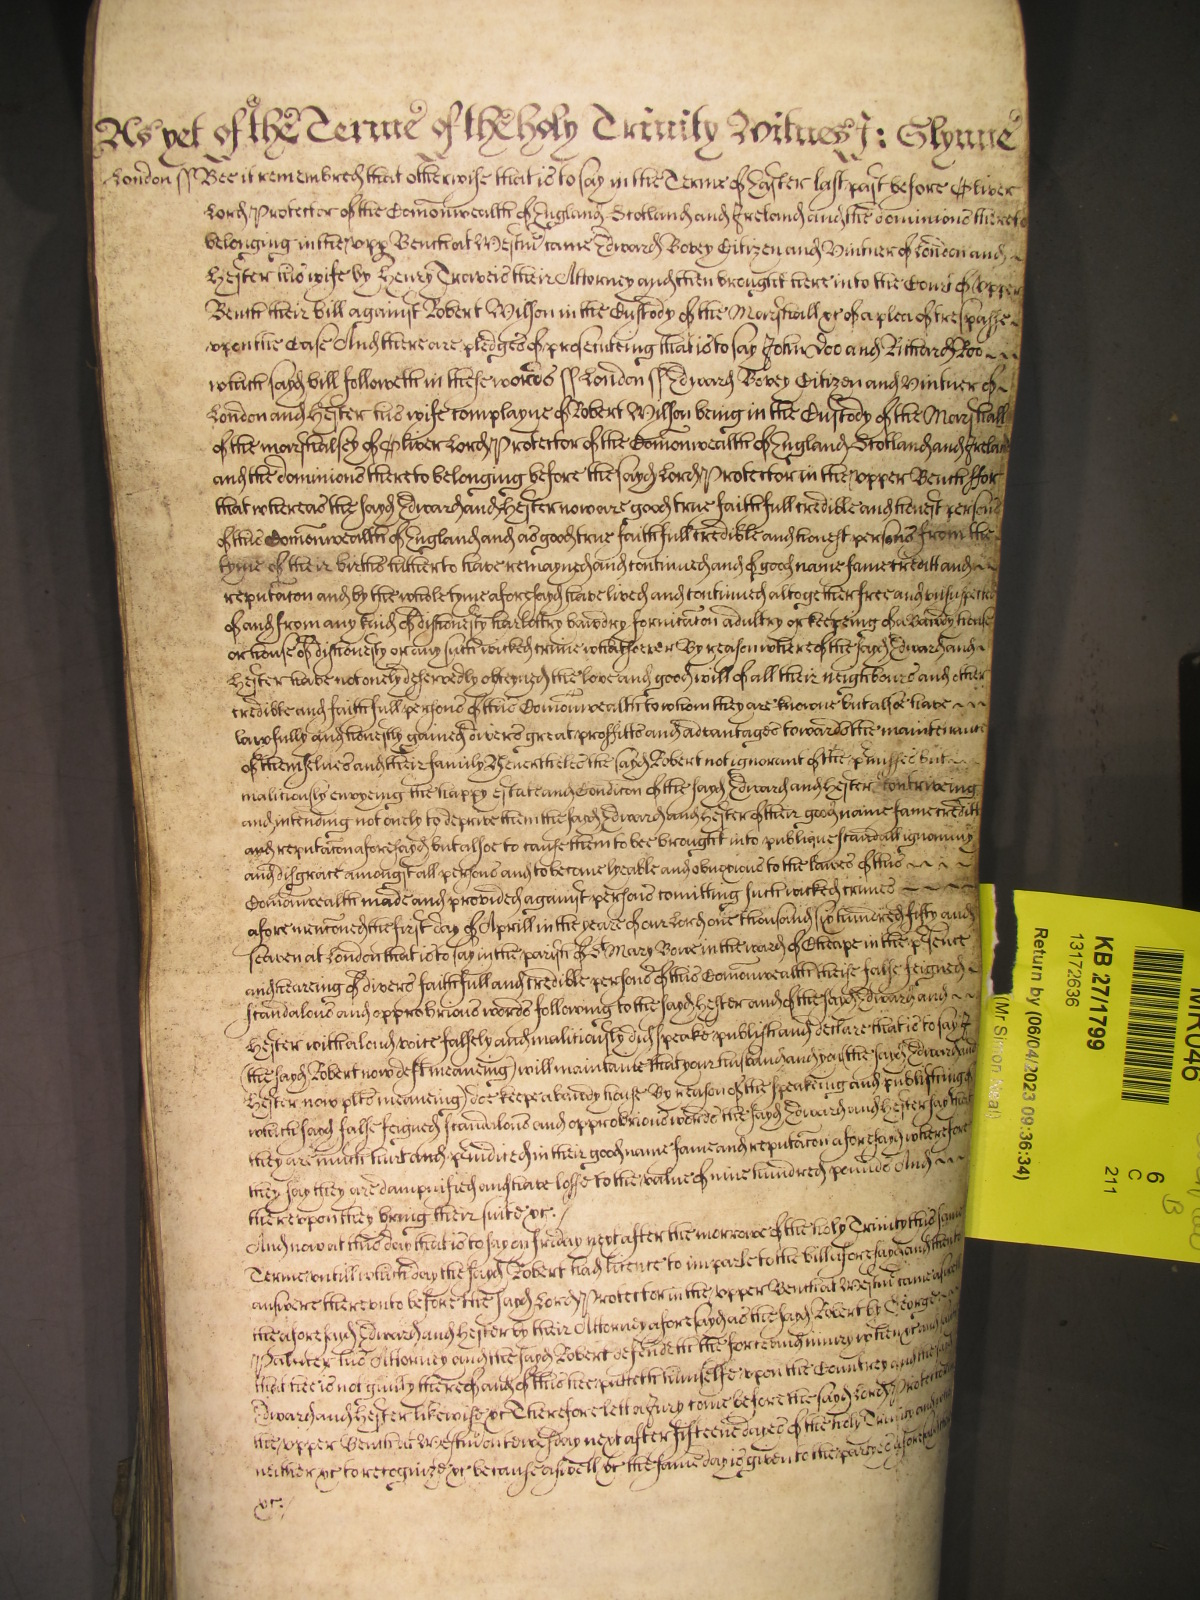 As yet of the Terme of the holy Trinity Witnes J: Glynne
London ss Bee it remembred that otherwise that is to say in the Terme of Easter last past before Oliver
Lord Protector of the Comonwealth of England Scotland and Ireland and the dominions thereto
belonging in the upp Bench at Westmr came Edward Bovey Citizen and Vintner of London and
Hester his wife by Henry Traveis their Attorney and then brought here into the Court of Upper
Bench their bill against Robert Wilson in the Custody of the Marshall &c of a plea of trespasse
upon the Case And there are pledges of prosecuteing that is to say John Doo and Richard Roo
which sayd bill followeth in these words ss London ss Edward Bovey Citizen and Vintner of
London and Hester his wife complayne of Robert Wilson being in the Custody of the Marshall
of the marshalsey of Oliver Lord Protector of the Comonwealth of England Scotland and Ireland
and the dominions thereto belonging before the sayd Lord Protector in the upper Bench ffor
that whereas the sayd Edward and Hester now are good true faithfull credible and honest persons
of this Comonwealth of England and as good true faithfull credible and honest persons from the
tyme of their births hitherto have remayned and continued and of good name fame creditt and
reputacon and by the whole tyme aforesayd have lived and continued altogether free and unsuspected
of and from any kind of dishonesty harlottry bawdry fornicacon adultry or keepeing of a Bawdy house
or house of dishonesty or any such wicked crime whatsoever By reason whereof the sayd Edward and
Hester have not onely deservedly obteyned the love and good will of all their neighbours and other
credible and faithfull persons of this Comonwealth to whom they are knowne but alsoe have
lawfully and honestly gained divers great proffitts and advantages towards the maintenance
of themselves and their family Neverthelesse the sayd Robert not ignorant of the pmisses but
malitiously envyeing the happy estate and Condicon of the sayd Edward and Hester contriveing
and intending not onely to deprive them the sayd Edward and Hester of their good name fame creditt
and reputacon aforesayd but alsoe to cause them to bee brought into publique scandall ignominy
and disgrace amongst all persons and to become lyeable and obnoxious to the lawes of this
Comonwealth made and provided against persons comitting such wicked crimes
afore menconed the first day of Aprill in the yeare of our Lord one thousand six hundred fifty and
seaven at London that is to say in the parish of St Mary Bowe in the ward of Cheape in the psence
and heareing of divers faithfull and credible persons of this Comonwealth theise false feigned
scandalous and opprobrious words following to the sayd Hester and of the sayd Edward and
Hester with a loud voice falsely and malitiously did speake publish and declare that is to say I
(the sayd Robert now deft meaneing) will maintaine that your husband and you (the sayd Edward and
Hester now plts meaneing) doe keepe a bawdy house By reason of the speakeing and publishing of
which sayd false feigned scandalous and opprobrious words the sayd Edward and Hester say that
they are much hurt and pjudiced in their good name fame and reputacon aforesayd wherefore
they say they are dampnified and have losse to the value of nine hundred pounds And
thereupon they bring their suite &c.
And now at this day that is to say on friday next after the morrowe of the holy Trinity this same
Terme untill which day the sayd Robert had licence to imparle to the bill aforesayd and then to
answere thereunto before the sayd Lord Protector in the upper Bench at Westmr came aswell
the aforesayd Edward and Hester by their Attorney aforesayd as the sayd Robert by George
Palmer his Attorney and the sayd Robert defendeth the force and iniury when &c and saith
that hee is not guilty thereof and of this hee putteth himselfe upon the Countrey and the sayd
Edward and Hester likewise &c Therefore lett a Jury come before the sayd Lord Protector in
the upper Bench at Westmr on wednesday next after fifteene dayes of the holy Trinity and who
neither &c to recognize &c because aswell &c the same day is given to the partyes aforesayd there
&c:
MR046
KB 27/1799
13172636
Return by (06/04/2023 09:36:34)
6
C
211